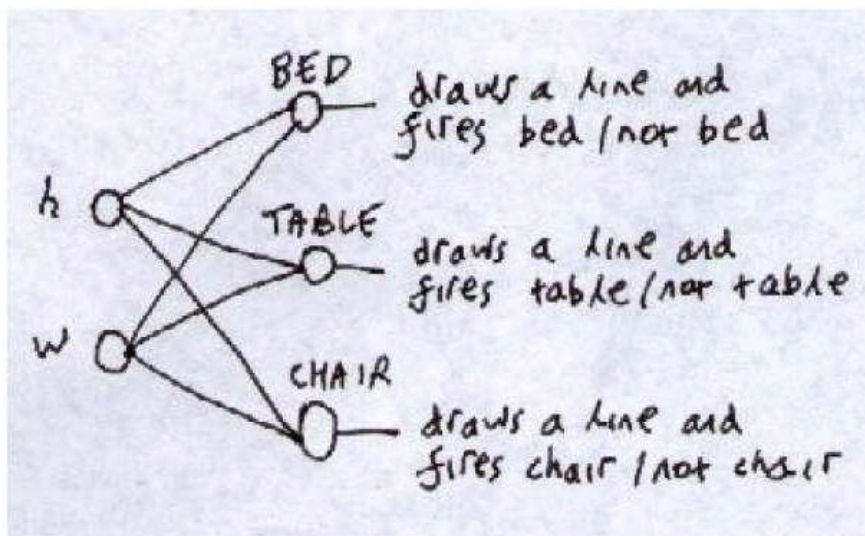 BED
draws a line and
fires bed / not bed
h
TABLE
draws a line and
fires table / not table
w
CHAIR
draws a line and
fires chair / not chair